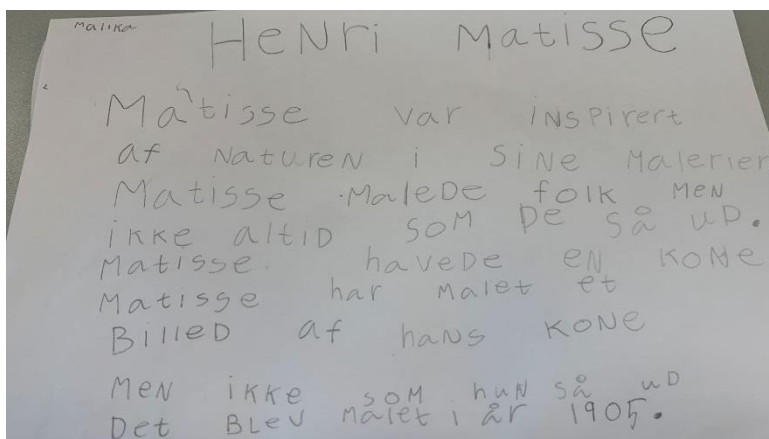 Malika
Henri Matisse
Matisse var inspirert
af Naturen i sine Malerier
Matisse Malede folk Men
ikke altid som De så ud.
Matisse havede en kone
Matisse har Malet et
Billed af hans kone
Men ikke som hun så ud
Det Blev Malet i år 1905.